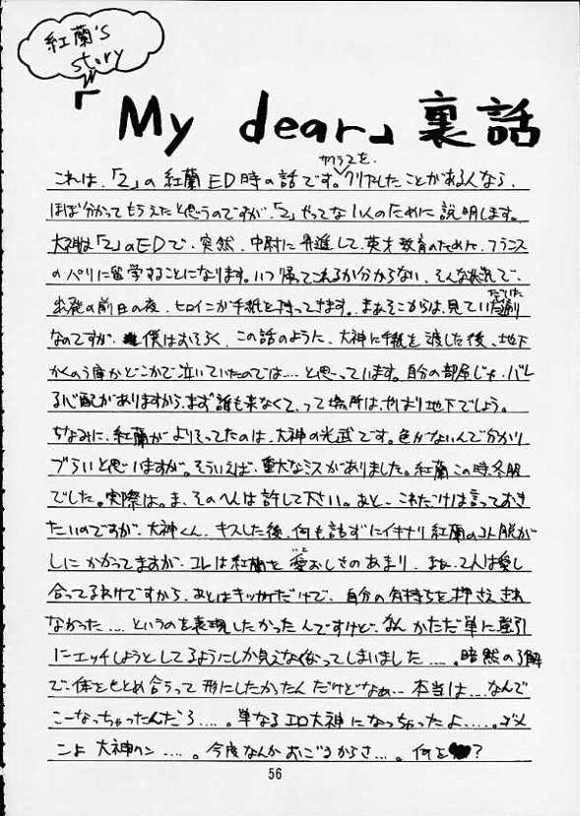 紅蘭's
story
「My dear」裏話
これは、「2」の紅蘭ED時の話です。カンペキにクリアしたことがある人なら、
ほぼ分かってもらえたと思うのですが、「2」やってない人のために説明します。
大神は「2」のEDで、突然、中尉に昇進して、英才教育のために、フランス
のパリに留学することになります。いつ帰ってこれるか分からない、そんな状況で、
出発の前日の夜、ヒロインが手紙を持ってきます。まぁそこからは、見ていただいた通り
なのですが、僕はおそらく、この話のように、大神に手紙を渡した後、地下
かくのう庫かどこかで泣いていたのでは…と思っています。自分の部屋じゃ、バレ
る心配がありますから、まず誰も来なくて、って場所は、やはり地下でしょう。
ちなみに、紅蘭がよりそってたのは、大神の光武です。色がないんで分かり
ヅらいと思いますが。そういえば、重大なミスがありました。紅蘭この時、冬服
でした。実際は。ま、そのへんは許して下さい。あと、これだけは言っておき
たいのですが、大神くん、キスした後、何も話さずにイキナリ紅蘭のコト脱が
しにかかってますが、コレは紅蘭を愛おしさのあまり、まぁ、2人は愛し
合ってるわけですから、あとはキッカケだけで、自分の気持ちを押さえきれ
なかった…というのを表現したかったんですけど、なんかただ単に強引
にエッチしようとしてるようにしか見えなくなってしまいました…。暗黙の了解
で、体をもとめ合うって形にしたかったんだけどなぁ…本当は…なんで
こーなっちゃったんだろ…。単なるエロ大神になっちゃったよ……。ゴメ
ンよ 大神クン…。今度なんかおごるからさ…。何を?
56